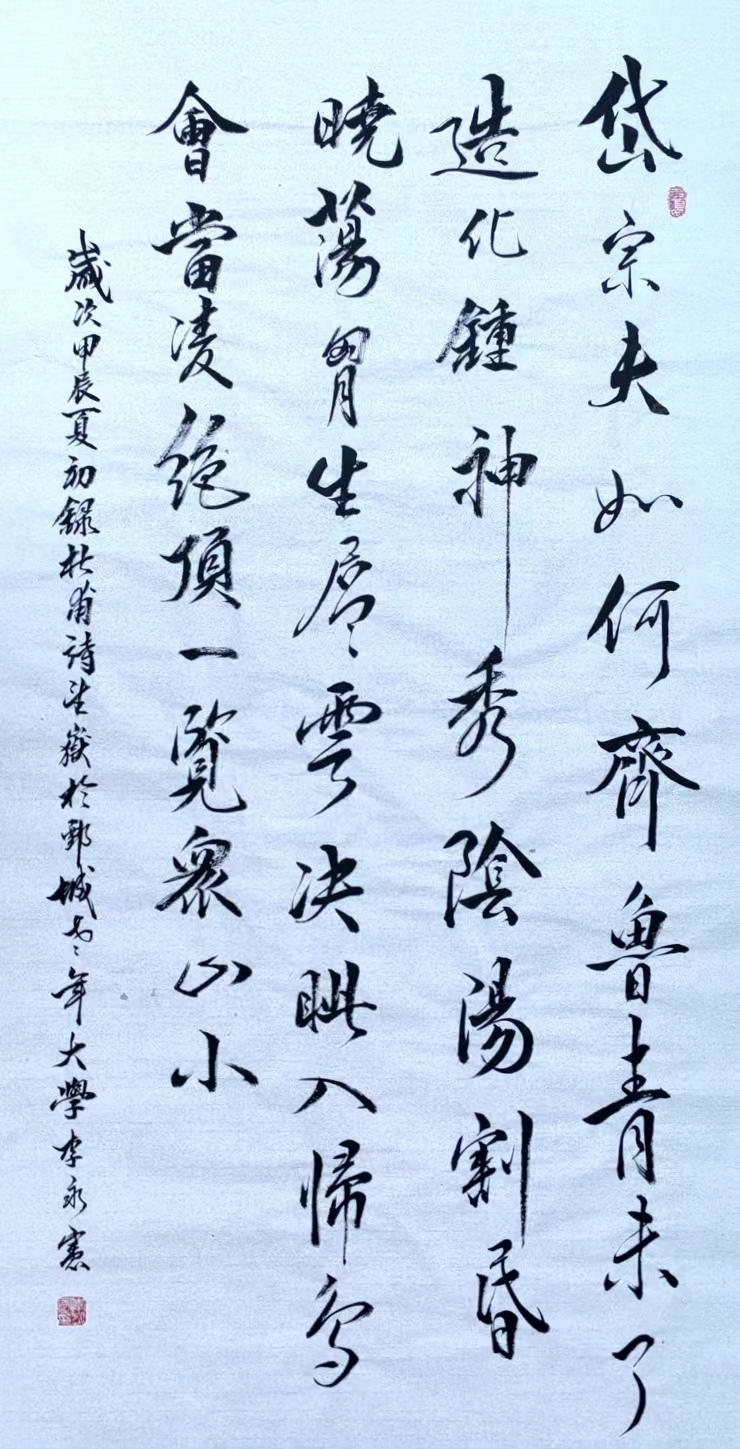 岱宗夫如何齊魯青未了
造化鍾神秀陰陽割昏
曉蕩胷生層雲決眥入帰鳥
會當凌絕頂一覽衆山小
歲次甲辰夏初録杜甫詩望嶽於鄄城老年大學李永憲